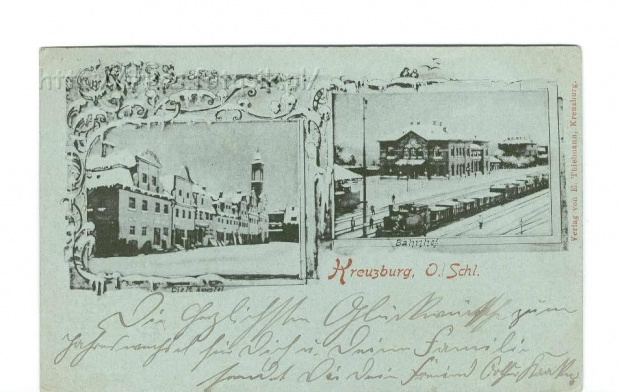 Bahnhof
Kreuzburg, O./Schl.
Verlag von E. Thielmann, Kreuzburg.
Die herzlichsten Glückwünsche zum
Jahreswechsel für Dich u. Deine Familie
sendet Dir Dein Freund